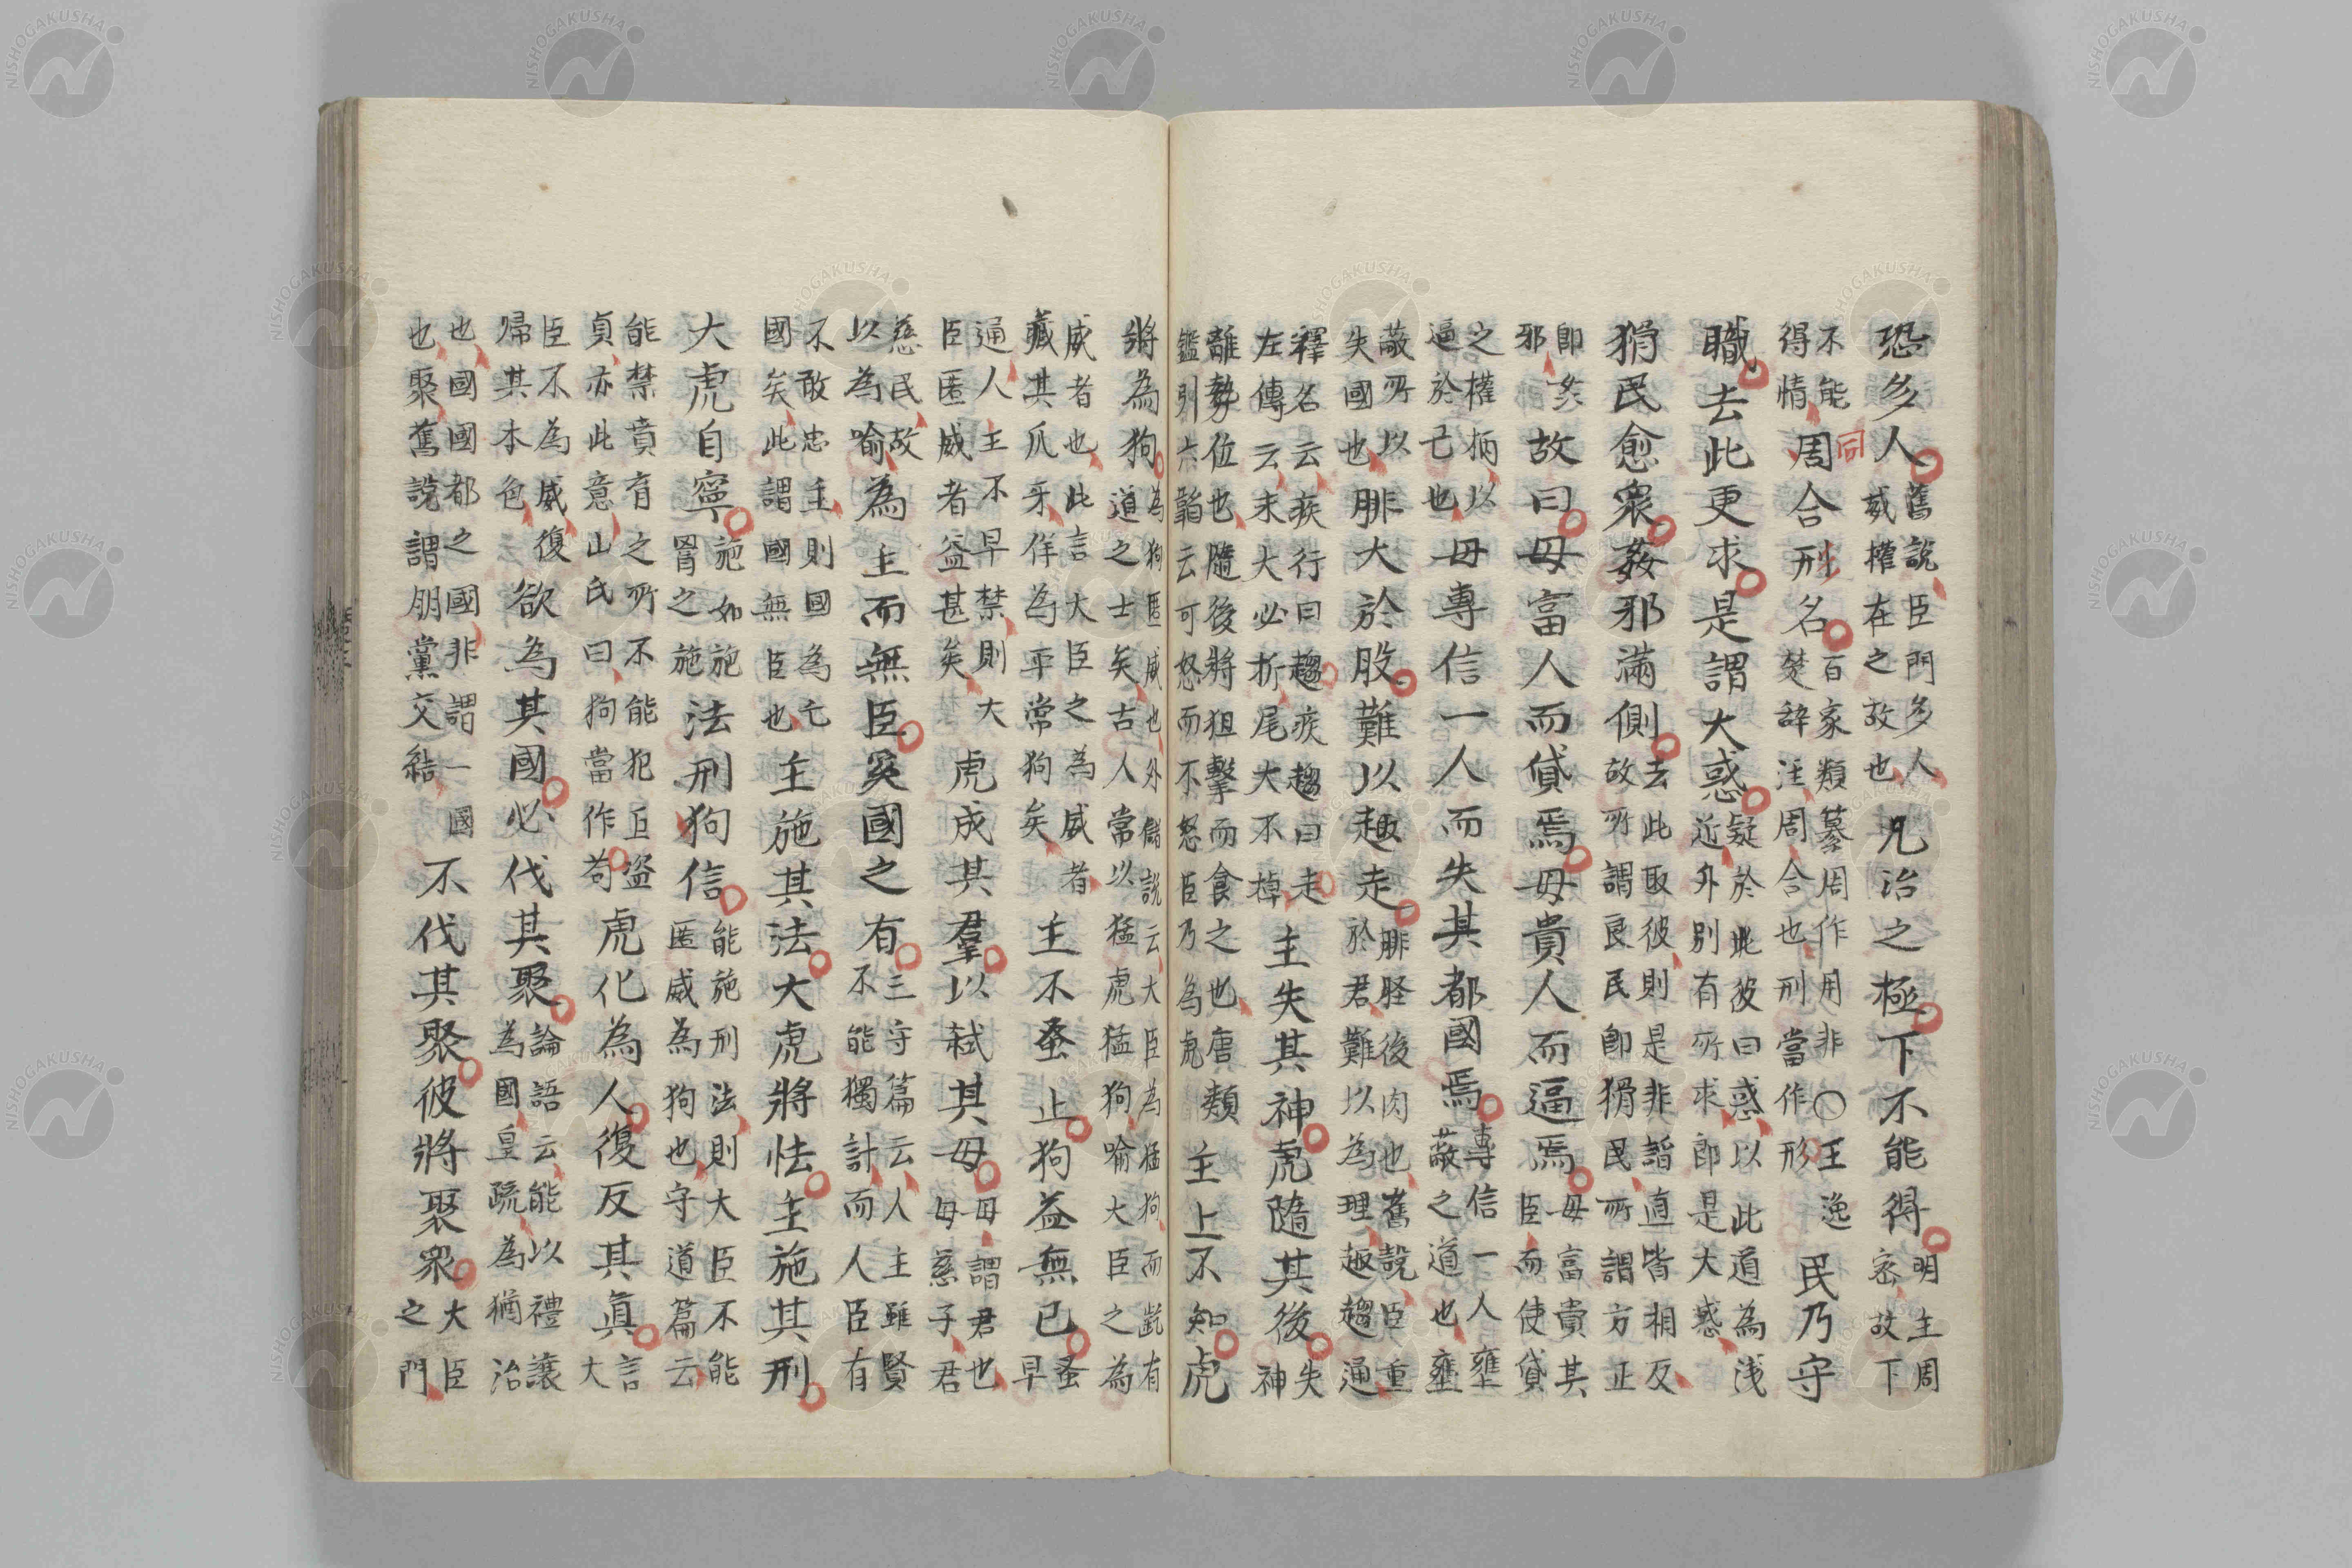 恐多人舊說臣門多人威權在之故也凡治之極下不能得明主周密故下
不能得情周合刑名百家類纂周作用非○王逸楚辞注周合也刑當作形民乃守
職去此更求是謂大惑疑於此彼曰惑以此道為浅近外別有所求即是大惑
猾民愈衆姦邪滿側去此取彼則是非諧直皆相反故所謂良民即猾民所謂方正
即姦邪故曰毋富人而貸焉毋貴人而逼焉毋富貴其臣而使貸
之權柄以逼於己也毋專信一人而失其都國焉專信一人壅蔽之道也壅
蔽所以失國也腓大於股難以趣走腓脛後肉也舊說臣重於君難以為理趣趨通
釋名云疾行曰趨疾趨曰走左傳云末大必折尾大不掉主失其神虎隨其後失神
離勢位也隨後將狙擊而食之也唐類鑑引六韜云可怒而不怒臣乃為虎主上不知虎
將為狗為狗匿威也外儲說云大臣為猛狗而齕有道之士矣古人常以猛虎猛狗喻大臣之為
威者也此言大臣之為威者藏其爪牙佯為平常狗矣主不蚤止狗益無已蚤早
通人主不早禁則大臣匿威者益甚矣虎成其羣以弒其母母謂君也母慈子君
慈民故以為喻為主而無臣奚國之有三守篇云人主雖賢不能獨計而人臣有
不敢忠主則國為亡國矣此謂國無臣也主施其法大虎將怯主施其刑
大虎自寧施如施冐之施法刑狗信能施刑法則大臣不能匿威為狗也守道篇云
能禁賁育之所不能犯丘盗貞亦此意山氏曰狗當作苟虎化為人復反其眞言大
臣不為威復歸其本色欲為其國必伐其聚論語云能以禮讓為國皇疏為猶治
也國國都之國非謂一國也聚舊說謂朋黨交結不伐其聚彼將聚衆大臣之門